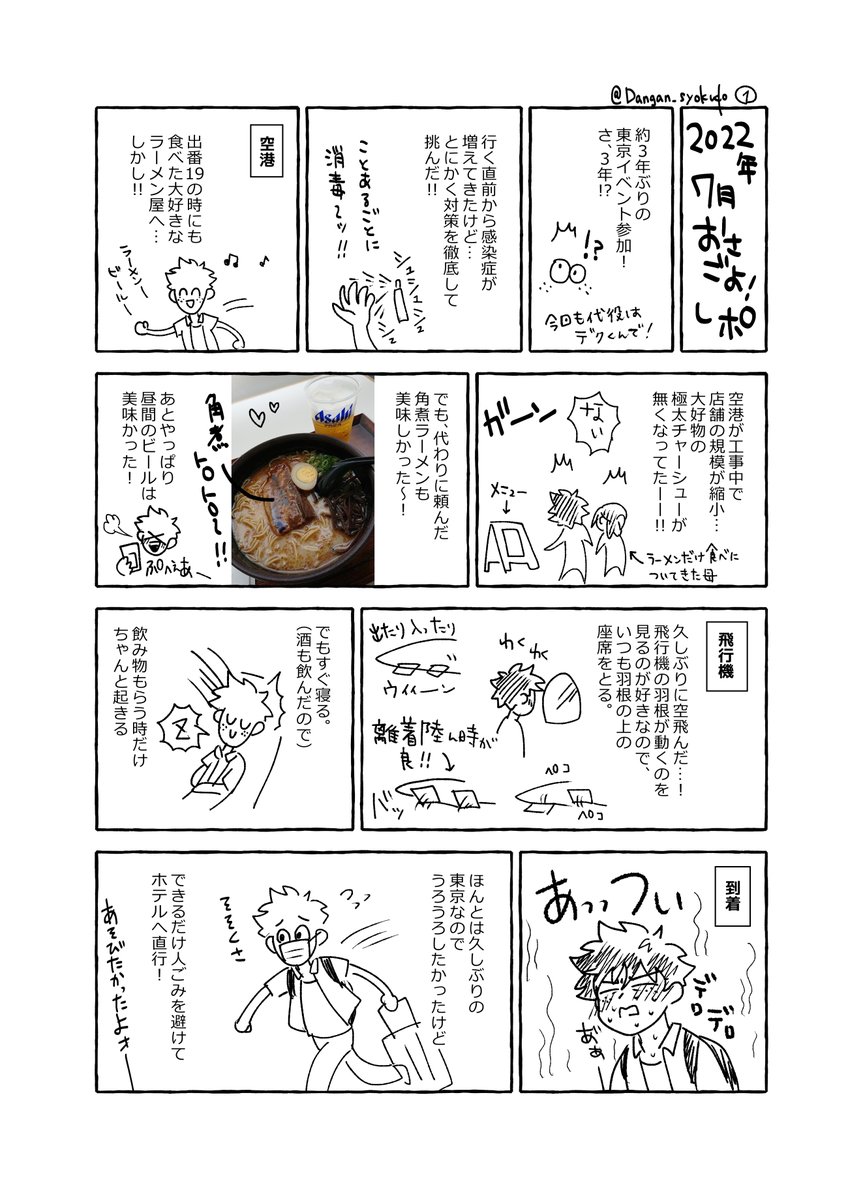 @Dangan_syokudo ①
2022年
7月
おーさ
ごよ!
レポ
約3年ぶりの
東京イベント参加!
さ、3年!?
!?
今回も代役は
デクくんで!
行く直前から感染症が
増えてきたけど…
とにかく対策を徹底して
挑んだ!!
ことあるごとに
消毒〜ッ!!
シュッ
シュッ
空港
出番19の時にも
食べた大好きな
ラーメン屋へ…
しかし!!
ラーメンー
ビールー
空港が工事中で
店舗の規模が縮小…
大好物の
極太チャーシューが
無くなってたーー!!
ない
ガーン
メニュー
ラーメンだけ食べに
ついてきた母
でも、代わりに頼んだ
角煮ラーメンも
美味しかった〜!
Asahi
角煮
トロトロ〜!!
あとやっぱり
昼間のビールは
美味かった!
ぷへぇあー
飛行機
久しぶりに空飛んだ…!
飛行機の羽根が動くのを
見るのが好きなので、
いつも羽根の上の
座席をとる。
わくわく
出たり入ったり
ウィーン
離着陸ん時が
良!!
バッ
ペロコ
ペロコ
でもすぐ寝る。
(酒も飲んだので)
Z
飲み物もらう時だけ
ちゃんと起きる
到着
あっっつい
デロデロ
あ゛ぁ
ほんとは久しぶりの
東京なので
うろうろしたかったけど
そそくさ
できるだけ人ごみを避けて
ホテルへ直行!
あそびたかったよォー